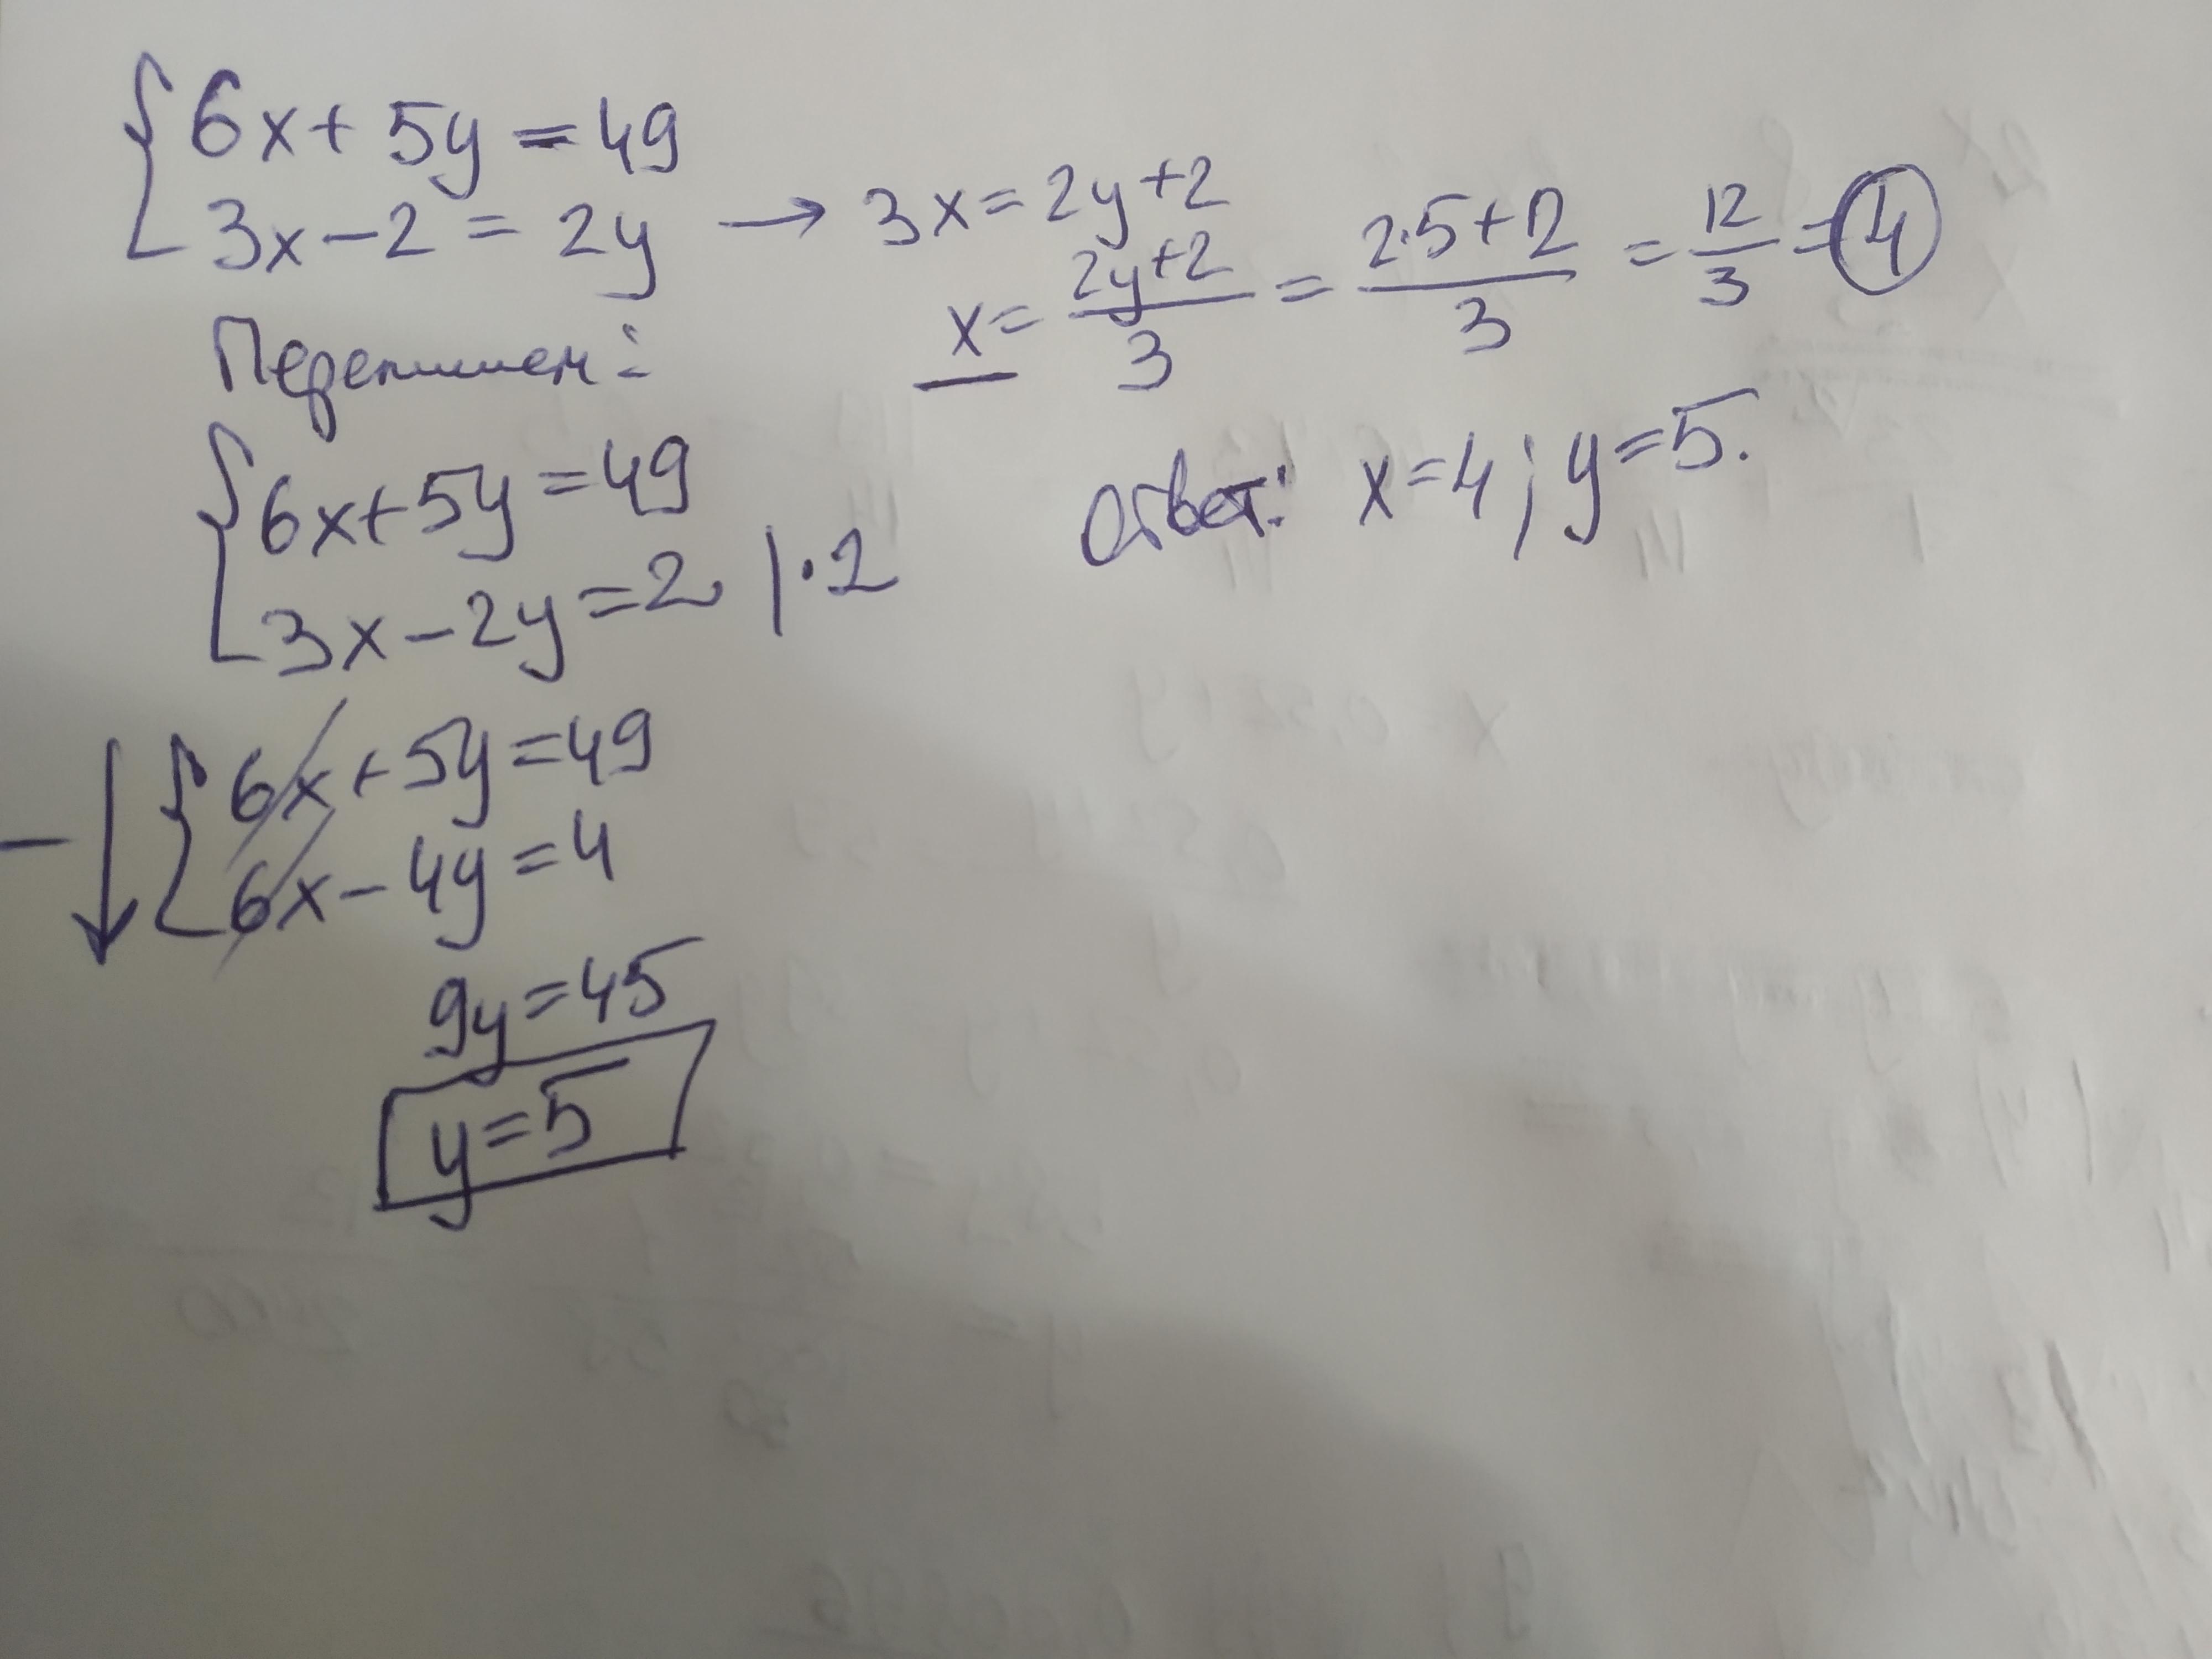 6x + 5y = 49
3x - 2 = 2y → 3x = 2y + 2
x = (2y+2)/3 = (2·5+2)/3 = 12/3 = 4
Перепишем:
6x + 5y = 49
3x - 2y = 2 | · 2
Ответ: x = 4; y = 5.
6x + 5y = 49
- 6x - 4y = 4
9y = 45
y = 5